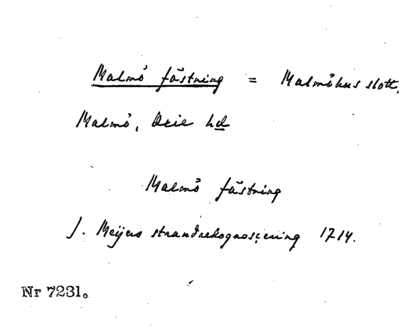 Malmö fästning = Malmöhus slott,
Malmö, Oxie hd
Malmö fästning
J. Meijers strandrekognoscering 1714.
Nr 7231.